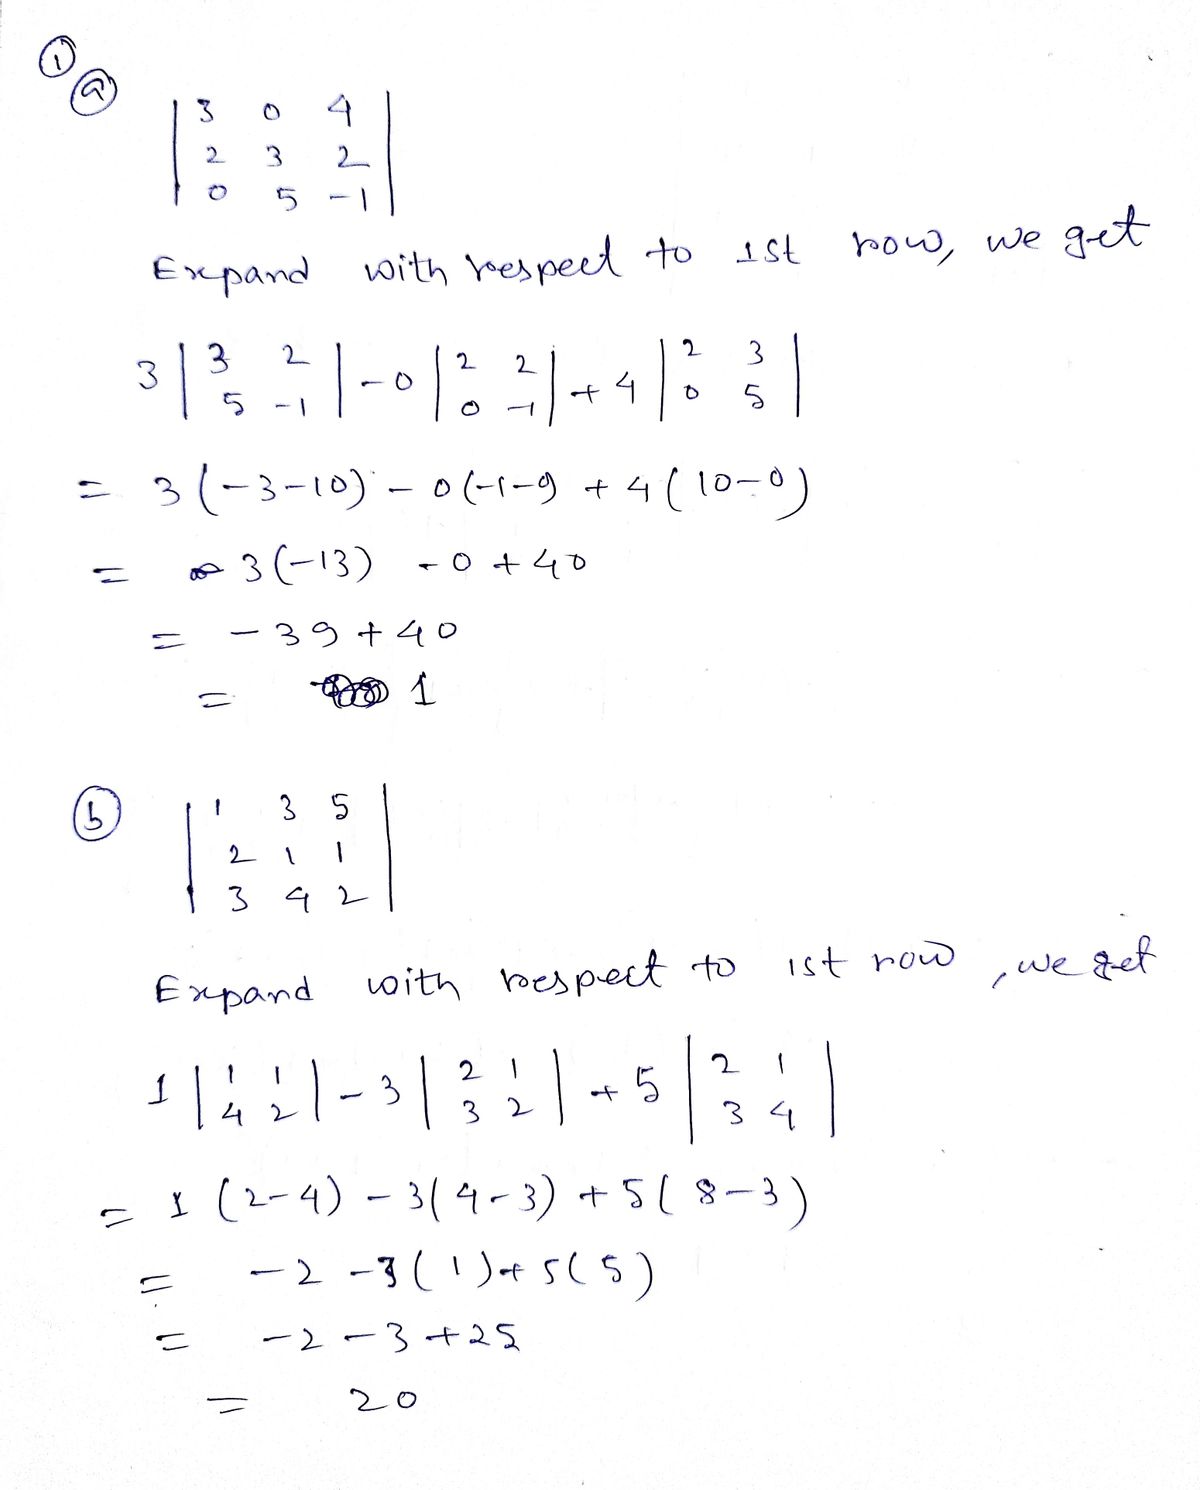 ①
ⓐ
| 3 0 4 |
| 2 3 2 |
| 0 5 -1 |
Expand with respect to 1st row, we get
3 | 3 2 | - 0 | 2 2 | + 4 | 2 3 |
| 5 -1 | | 0 -1 | | 0 5 |
= 3(-3-10) - 0(-1-9 + 4(10-0)
= 3(-13) - 0 + 40
= -39 + 40
= 1
ⓑ
| 1 3 5 |
| 2 1 1 |
| 3 4 2 |
Expand with respect to 1st row, we get
1 | 1 1 | - 3 | 2 1 | + 5 | 2 1 |
| 4 2 | | 3 2 | | 3 4 |
= 1 (2-4) - 3(4-3) + 5(8-3)
= -2 -3(1)+5(5)
= -2 -3 +25
= 20